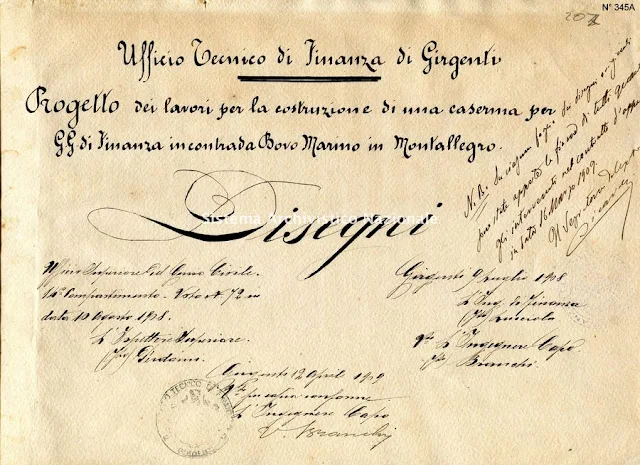 N° 345A
207
Ufficio Tecnico di Finanza di Girgenti
Progetto dei lavori per la costruzione di una caserma per
GG di Finanza in contrada Bovo Marino in Montallegro.
N.B. In ciascun foglio dei disegni originali
sono state apposte le firme di tutti
gli intervenuti nel contratto d'app
in data 16 Marzo 1909.
Il Segretario
Disegni
Sistema Archivistico Nazionale
Ufficio Superiore del Genio Civile.
Compartimento - Voto N° 72 in
data 10 agosto 908.
L'Ispettore Superiore.
Girgenti 9 Luglio 908
L'Ing. di Finanza
L'Ingegnere Capo
Bianchi
Girgenti 12 Aprile 1909
Per copia conforme
L'Ingegnere Capo
V. Bianchi
TECNICO